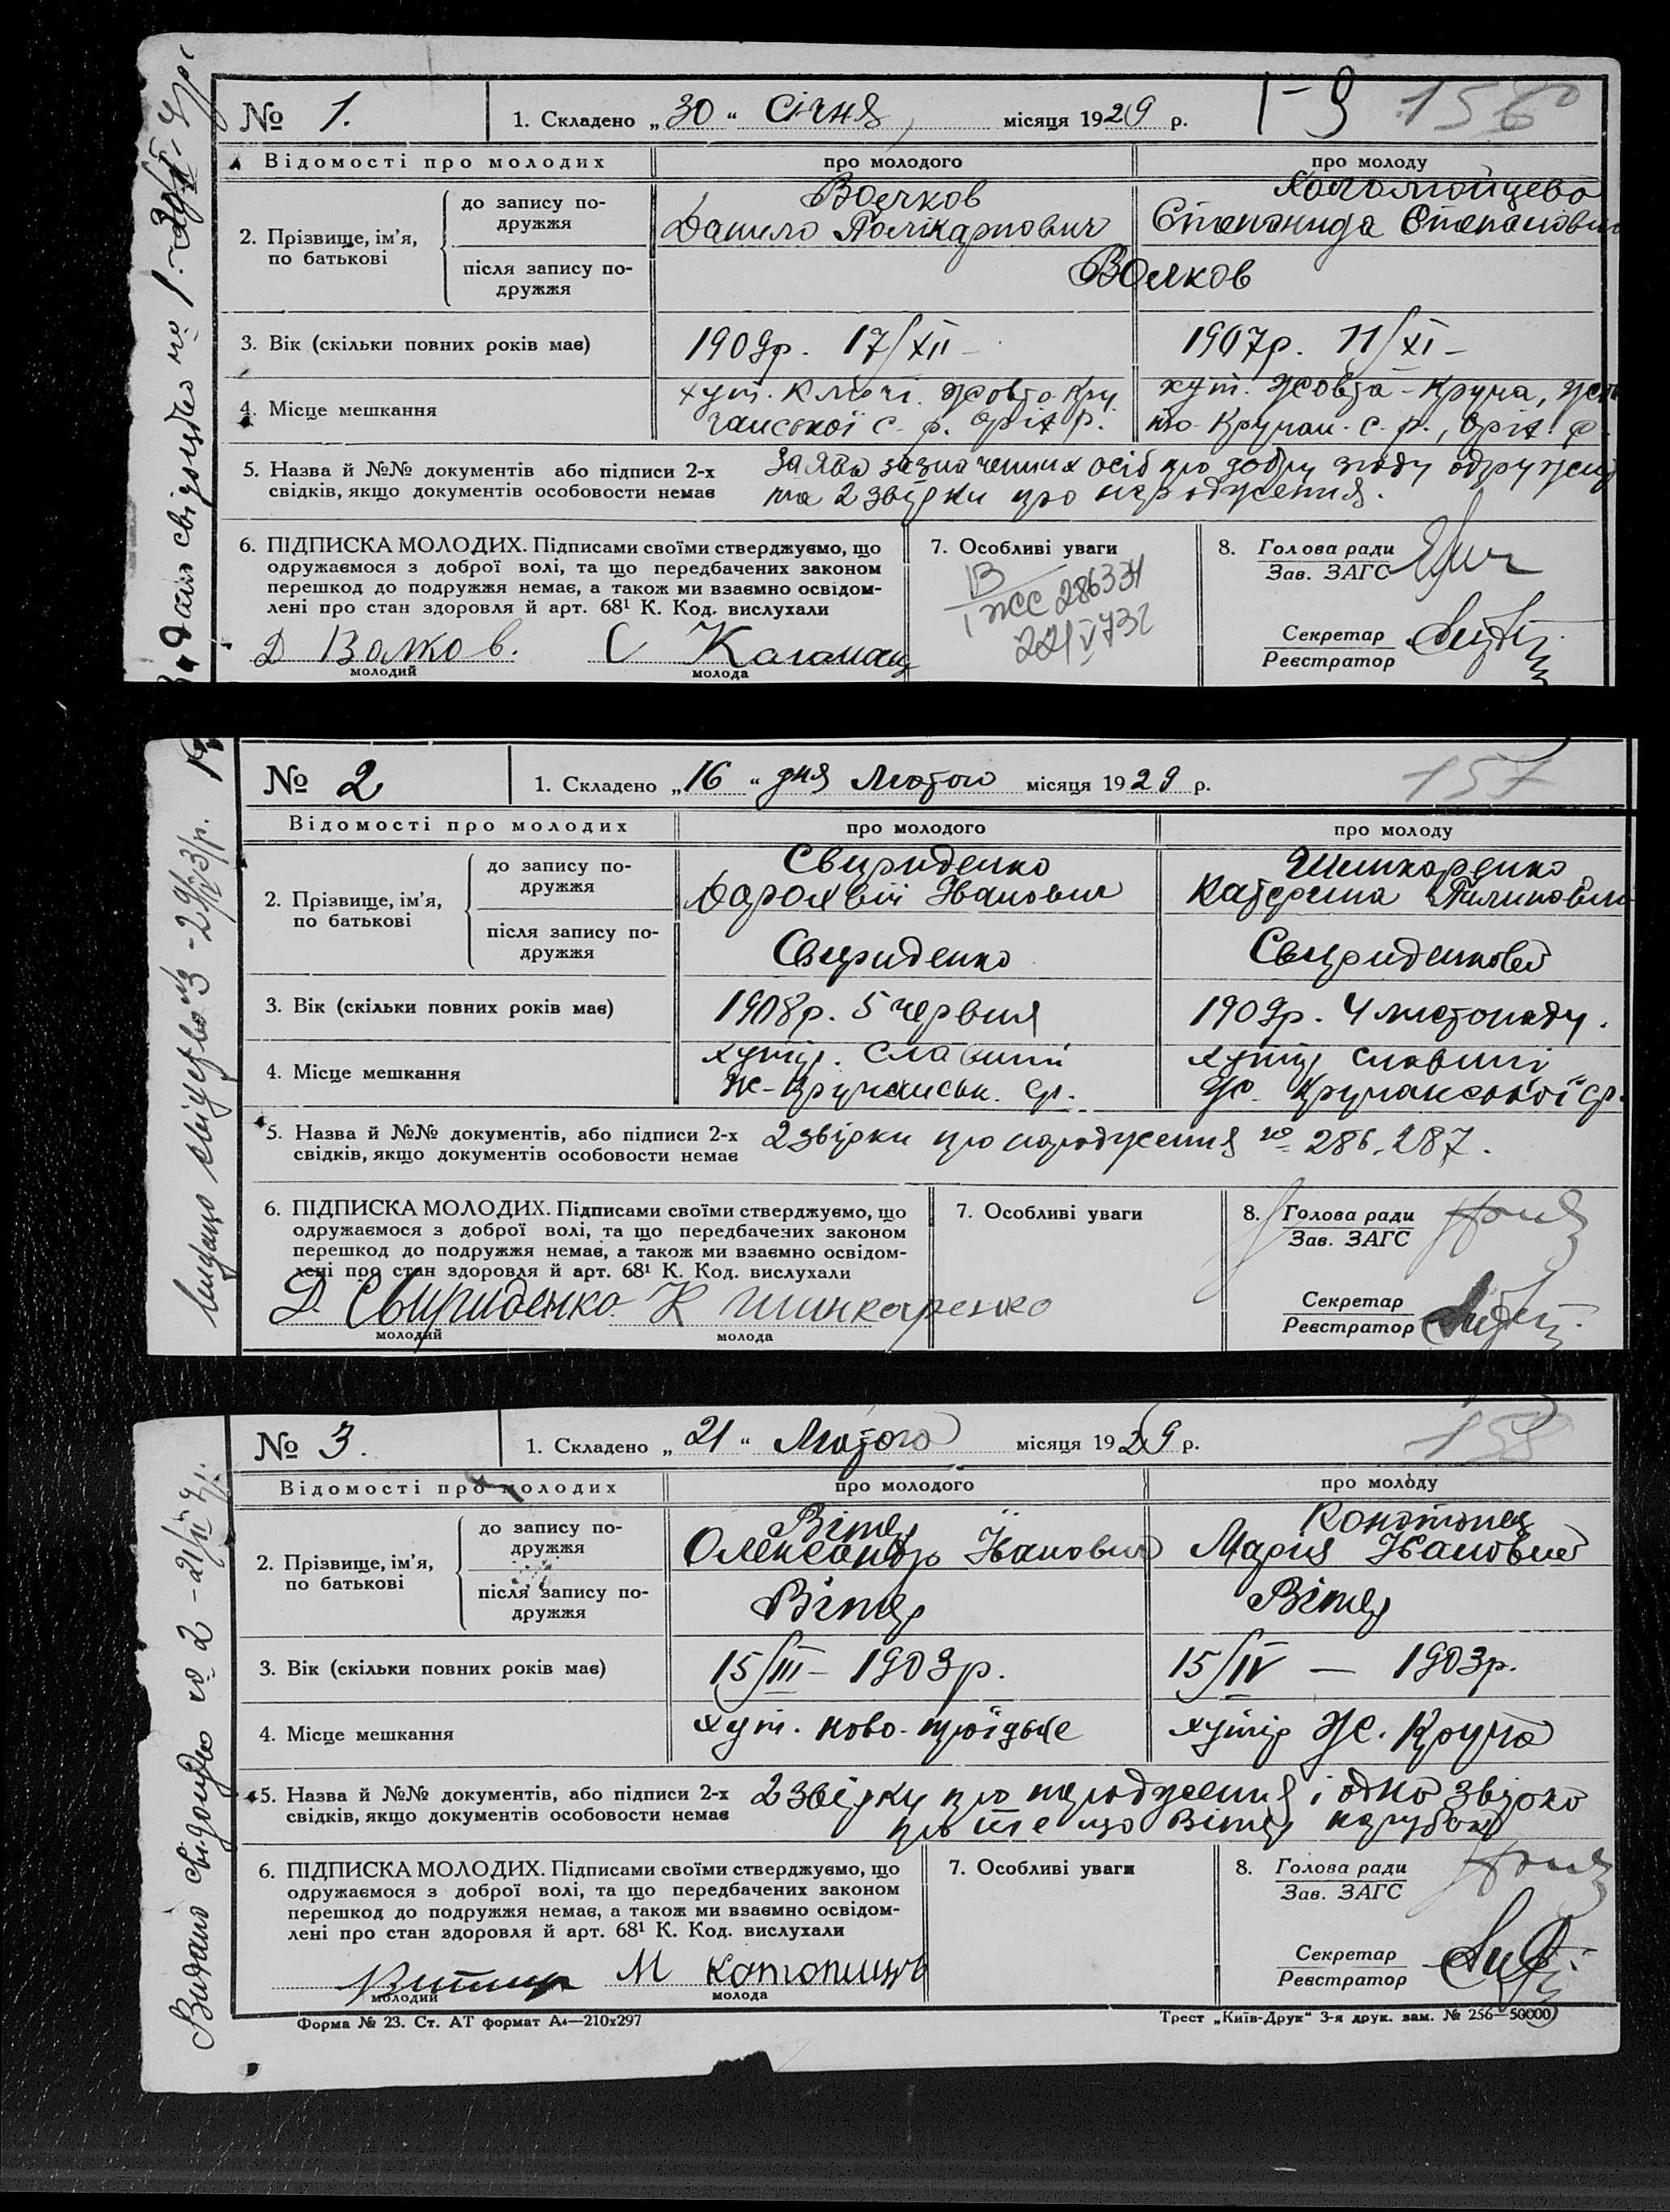 № 1. 1. Складено „30“ Січня місяця 1929 р. 156
Відомості про молодих про молодого про молоду
2. Прізвище, ім'я, по батькові
до запису по-
дружжя
Волков
Данило Полікарпович
Степанида Степановна
після запису по-
дружжя
Волков
3. Вік (скільки повних років має) 1909р. 17/XII – 1907р. 11/XI –
4. Місце мешкання
хут. Ключі. Жовто-Кру
чанської с. р. Оріх р.
хут. Жовта-Круча, Жов
то-Кручан. с. р., Оріх. р.
5. Назва й №№ документів або підписи 2-х
свідків, якщо документів особовости немає
Заява зазначених осіб про добру згоду
та 2 звірки про народження.
6. ПІДПИСКА МОЛОДИХ. Підписами своїми стверджуємо, що
одружаємося з доброї волі, та що передбачених законом
перешкод до подружжя немає, а також ми взаємно освідом-
лені про стан здоровля й арт. 68¹ К. Код. вислухали
Д Волков. С
молодий молода
7. Особливі уваги
286334
8. Голова ради
Зав. ЗАГС
Секретар
Реєстратор
Видано свідоцтво № 1.
№ 2 1. Складено „16“ дня Лютого місяця 1929 р. 157
Відомості про молодих про молодого про молоду
2. Прізвище, ім'я,
по батькові
до запису по-
дружжя
Свириденко
Іванович
Шинкаренко
Катерина
після запису по-
дружжя
Свириденко
Свириденкова
3. Вік (скільки повних років має) 1908р. 5 червня 1909р. 4 листопаду.
4. Місце мешкання
хутір. Славний
Ж-Кручанськ. ср.
хутір Славний
Ж. Кручанської ср.
5. Назва й №№ документів, або підписи 2-х
свідків, якщо документів особовости немає
2 звірки про народження № 286, 287.
6. ПІДПИСКА МОЛОДИХ. Підписами своїми стверджуємо, що
одружаємося з доброї волі, та що передбачених законом
перешкод до подружжя немає, а також ми взаємно освідом-
лені про стан здоровля й арт. 68¹ К. Код. вислухали
Д. Свириденко К Шинкаренко
молодий молода
7. Особливі уваги
8. Голова ради
Зав. ЗАГС
Секретар
Реєстратор
№ 3. 1. Складено „21“ Лютого місяця 1929 р. 158
Відомості про молодих про молодого про молоду
2. Прізвище, ім'я,
по батькові
до запису по-
дружжя
Вітер
Олександр Іванович
Марія Івановна
після запису по-
дружжя
Вітер
Вітер
3. Вік (скільки повних років має) 15/III – 1903р. 15/IV – 1903р.
4. Місце мешкання хут. Ново-троїцьке хутір Ж. Круча
5. Назва й №№ документів, або підписи 2-х
свідків, якщо документів особовости немає
2 звірки про народження і одна звірка
про те що Вітер парубок
6. ПІДПИСКА МОЛОДИХ. Підписами своїми стверджуємо, що
одружаємося з доброї волі, та що передбачених законом
перешкод до подружжя немає, а також ми взаємно освідом-
лені про стан здоровля й арт. 68¹ К. Код. вислухали
М
молодий молода
7. Особливі уваги
8. Голова ради
Зав. ЗАГС
Секретар
Реєстратор
Видано свідоцтво № 2 – 21/II
Форма № 23. Ст. АТ формат А₄—210х297
Трест „Київ-Друк“ 3-я друк. зам. № 256—50000